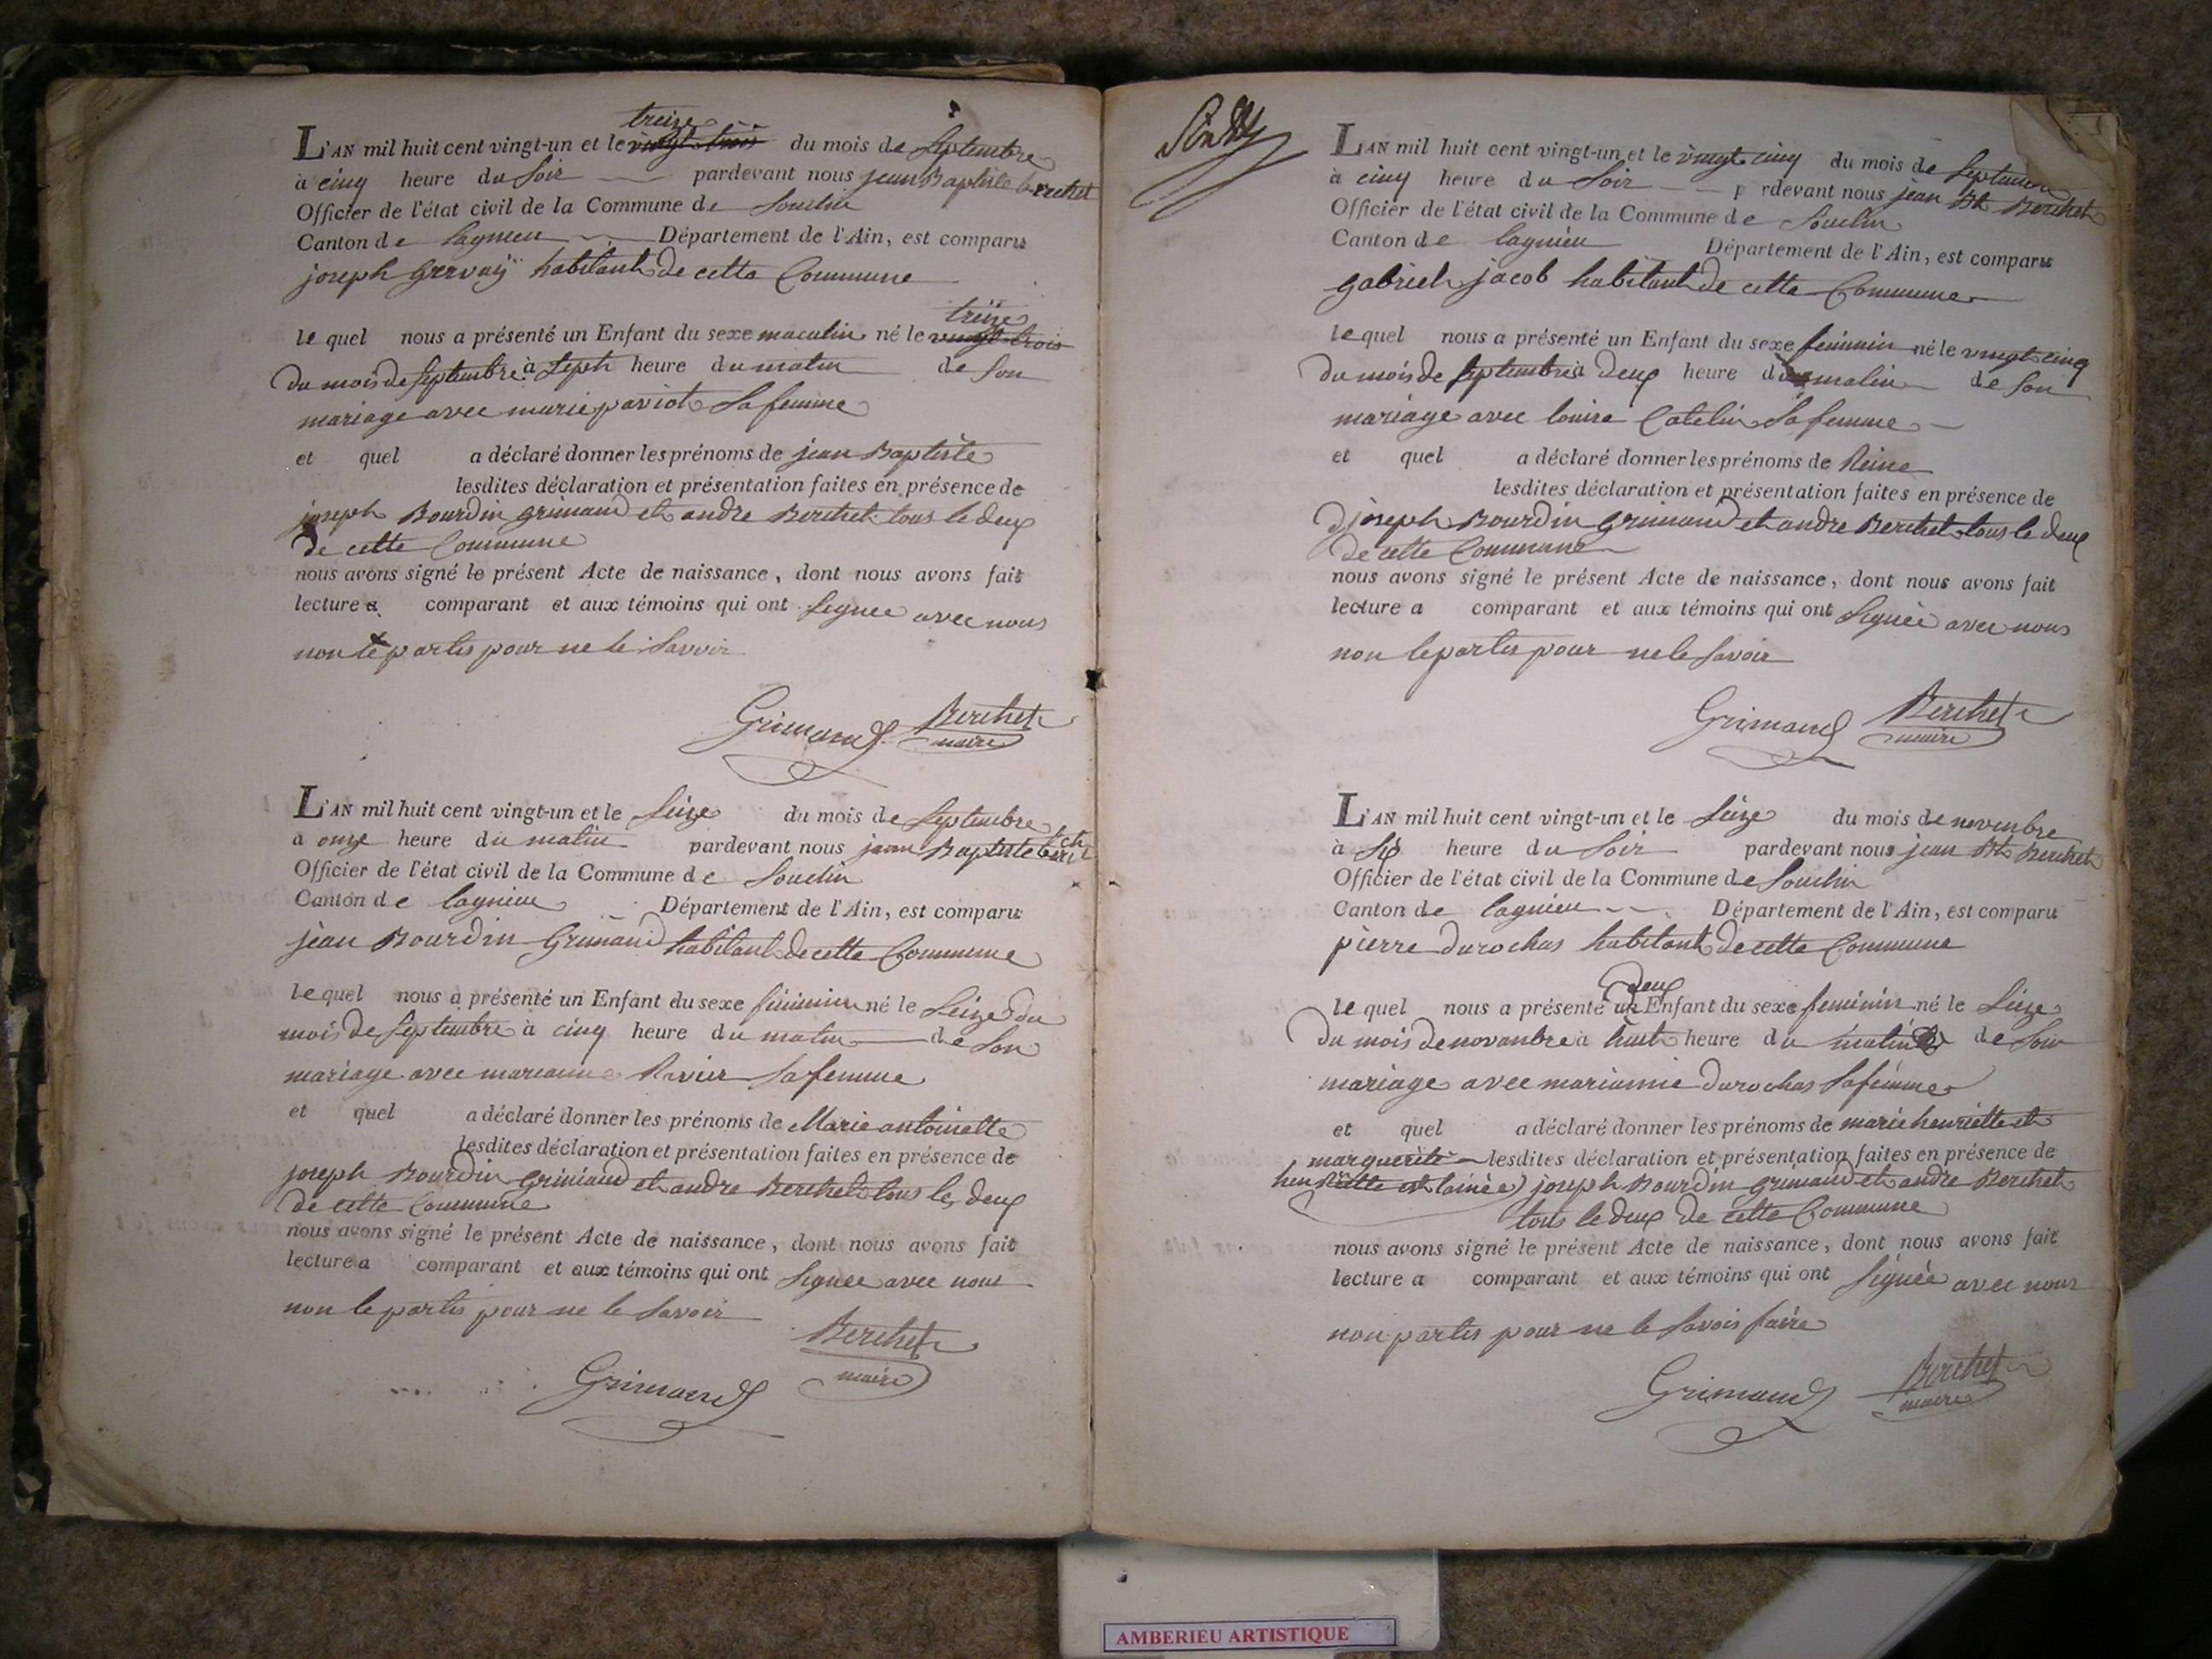 treize
L'AN mil huit cent vingt-un et le vingt trois du mois de Septembre
à cinq heure du Soir pardevant nous jean Baptiste berchet
Officier de l'état civil de la Commune de Souclin
Canton de lagnieu Département de l'Ain, est comparu
joseph Gervaÿ habitant de cette Commune
treize
le quel nous a présenté un Enfant du sexe maculin né le vingt trois
du mois de Septembre à Seph heure du matin de Son
mariage avec marie paviot Sa femme
et quel a déclaré donner les prénoms de jean Baptiste
lesdites déclaration et présentation faites en présence de
joseph Bourdin grimaud et andre Berchet tous le deux
de cette Commune
nous avons signé le présent Acte de naissance, dont nous avons fait
lecture a comparant et aux témoins qui ont Signee avec nous
non le parties pour ne le Savoir
Grimaud Berchet
maire
L'AN mil huit cent vingt-un et le Seize du mois de Septembre
à onze heure du matin pardevant nous jean Baptiste berch
Officier de l'état civil de la Commune de Souclin
Canton de lagnieu Département de l'Ain, est comparu
jean Bourdin Grimaud habitant de cette Commune
le quel nous a présenté un Enfant du sexe féminin né le Seize du
mois de Septembre à cinq heure du matin de Son
mariage avec marianne Ravier Sa femme
et quel a déclaré donner les prénoms de Marie antoinette
lesdites déclaration et présentation faites en présence de
joseph Bourdin Grimaud et andre Berchet tous les deux
de cette Commune
nous avons signé le présent Acte de naissance, dont nous avons fait
lecture a comparant et aux témoins qui ont Signee avec nous
non le parties pour ne le Savoir
Berchet
maire
Grimaud
L'AN mil huit cent vingt-un et le vingt cinq du mois de Septembre
à cinq heure du Soir p rdevant nous jean Bte Berchet
Officier de l'état civil de la Commune de Souclin
Canton de lagnieu Département de l'Ain, est comparu
gabriel jacob habitant de cette Commune
le quel nous a présenté un Enfant du sexe féminin né le vingt cinq
du mois de Septembre à deux heure du matin de Son
mariage avec louise Catelin Sa femme
et quel a déclaré donner les prénoms de Reine
lesdites déclaration et présentation faites en présence de
joseph Bourdin Grimaud et andre Berchet tous le deux
de cette Commune
nous avons signé le présent Acte de naissance, dont nous avons fait
lecture a comparant et aux témoins qui ont Signée avec nous
non le parties pour ne le Savoir
Grimaud Berchet
maire
L'AN mil huit cent vingt-un et le Seize du mois de novembre
à Six heure du Soir pardevant nous jean Bte Berchet
Officier de l'état civil de la Commune de Souclin
Canton de lagnieu Département de l'Ain, est comparu
pierre durochas habitant de cette Commune
deux
le quel nous a présenté un Enfant du sexe feminin né le Seize
du mois de novanbre à huit heure du matin de Son
mariage avec marianne durochas Sa femme
et quel a déclaré donner les prénoms de marie henriette et
marguerite lesdites déclaration et présentation faites en présence de
henriette est lainée) joseph Bourdin Grimaud et andre Berchet
tous le deux de cette Commune
nous avons signé le présent Acte de naissance, dont nous avons fait
lecture a comparant et aux témoins qui ont Signée avec nous
non parties pour ne le Savois faire
Grimaud Berchet
maire
AMBERIEU ARTISTIQUE